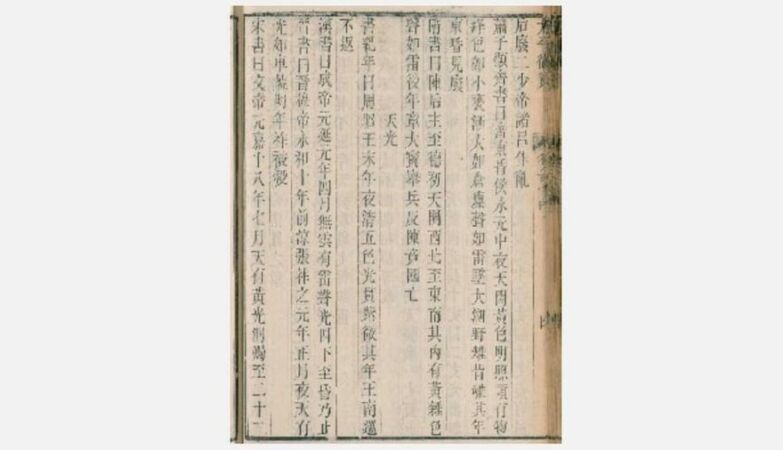 后廢二少帝諸呂作亂
蕭子顯齊書曰齊東昏侯永元中夜天開黃色明照須有物
絳色如小甕漸大如倉廩聲如雷墜大湖野雉皆雊其年
東昏見廢
南書曰陳后主至德初天開西北至東南其內有黃雜色
聲如雷後年章大寶舉兵反陳竟國亡
天光
書紀年曰周昭王末年夜清五色光貫紫微其年王南巡
不返
漢書曰成帝元延元年四月無雲有雷聲光四下至昏乃止
書曰晉穆帝永和十年前涼張祚之元年正月夜天有
光如車蓋明年祚被殺
宋書曰文帝元嘉十八年七月天有黃光洞照至二十二